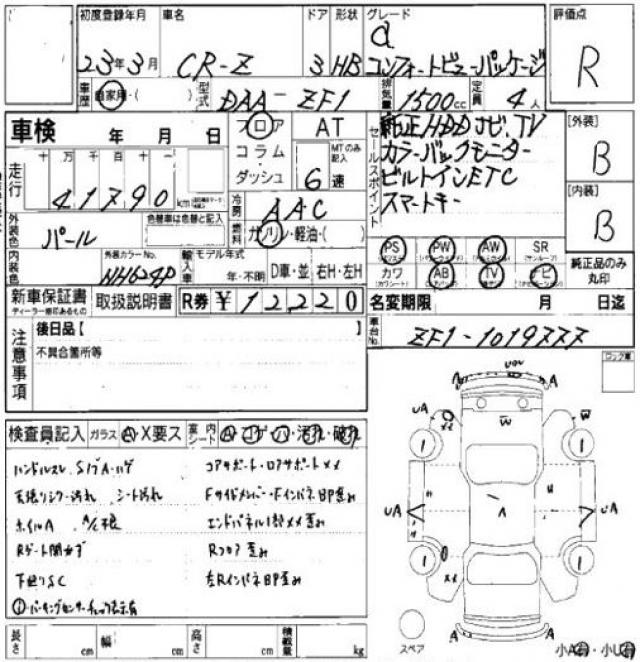 初度登録年月 車名 ドア 形状 グレード 評価点
23年3月 CR-Z 3 HB α コンフォートビューパッケージ R
車歴 自家用・( ) 型式 DAA-ZF1 排気量 1500cc 定員 4人
車検 年 月 日
フロア AT
コラム MTのみ記入
ダッシュ 6速
走行 十 万 千 百 十 一
41790 km
セールスポイント
純正HDDナビ、TV
カラーバックモニター
ビルトインETC
スマートキー
[外装]
B
[内装]
B
冷房 AAC
燃料 ガソリン・軽油・( )
外装色 パール 色替車は色替と記入
内装色 外装カラーNo. NH624P
輸入車 モデル年式 年・不明 D車・並 右H・左H
PS PW AW SR
カワ AB TV ナビ
純正品のみ丸印
新車保証書 取扱説明書 R券 ¥12220
ディーラー捺印あるもの
名変期限 月 日迄
車台No. ZF1-1019777
注意事項
後日品【
不具合箇所等
ロック車
検査員記入 ガラス A・X要ス 室内シート A・コゲ・ハ・汚れ・破れ
ハンドルスレ SブA・ハゲ
天張りシワ・汚れ シート汚れ
ホイルA
Rゲート開かず
下廻りSC
コアサポート・ロアサポートXX
Fサイドメンバー・Fインパネ部歪み
エンドパネル1部XX歪み
Rフロア歪み
左Rインパネ部歪み
長さ cm 幅 cm 高さ cm 積載量 kg
UA
A
A
UA
W
W
XX
1
1
UA
UA
A
1
1
XX
A
A
スペア
小A有・小U有